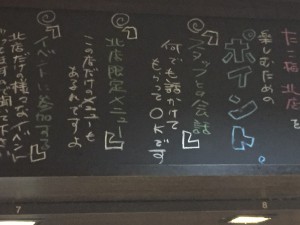 たこ宿 北店を
楽しむための
ポイント。
スタッフとの会話
何でも話かけて
もらってOKです
北店限定メニュー
この店だけのメニューも
あるよ
イベントに参加する
7
8